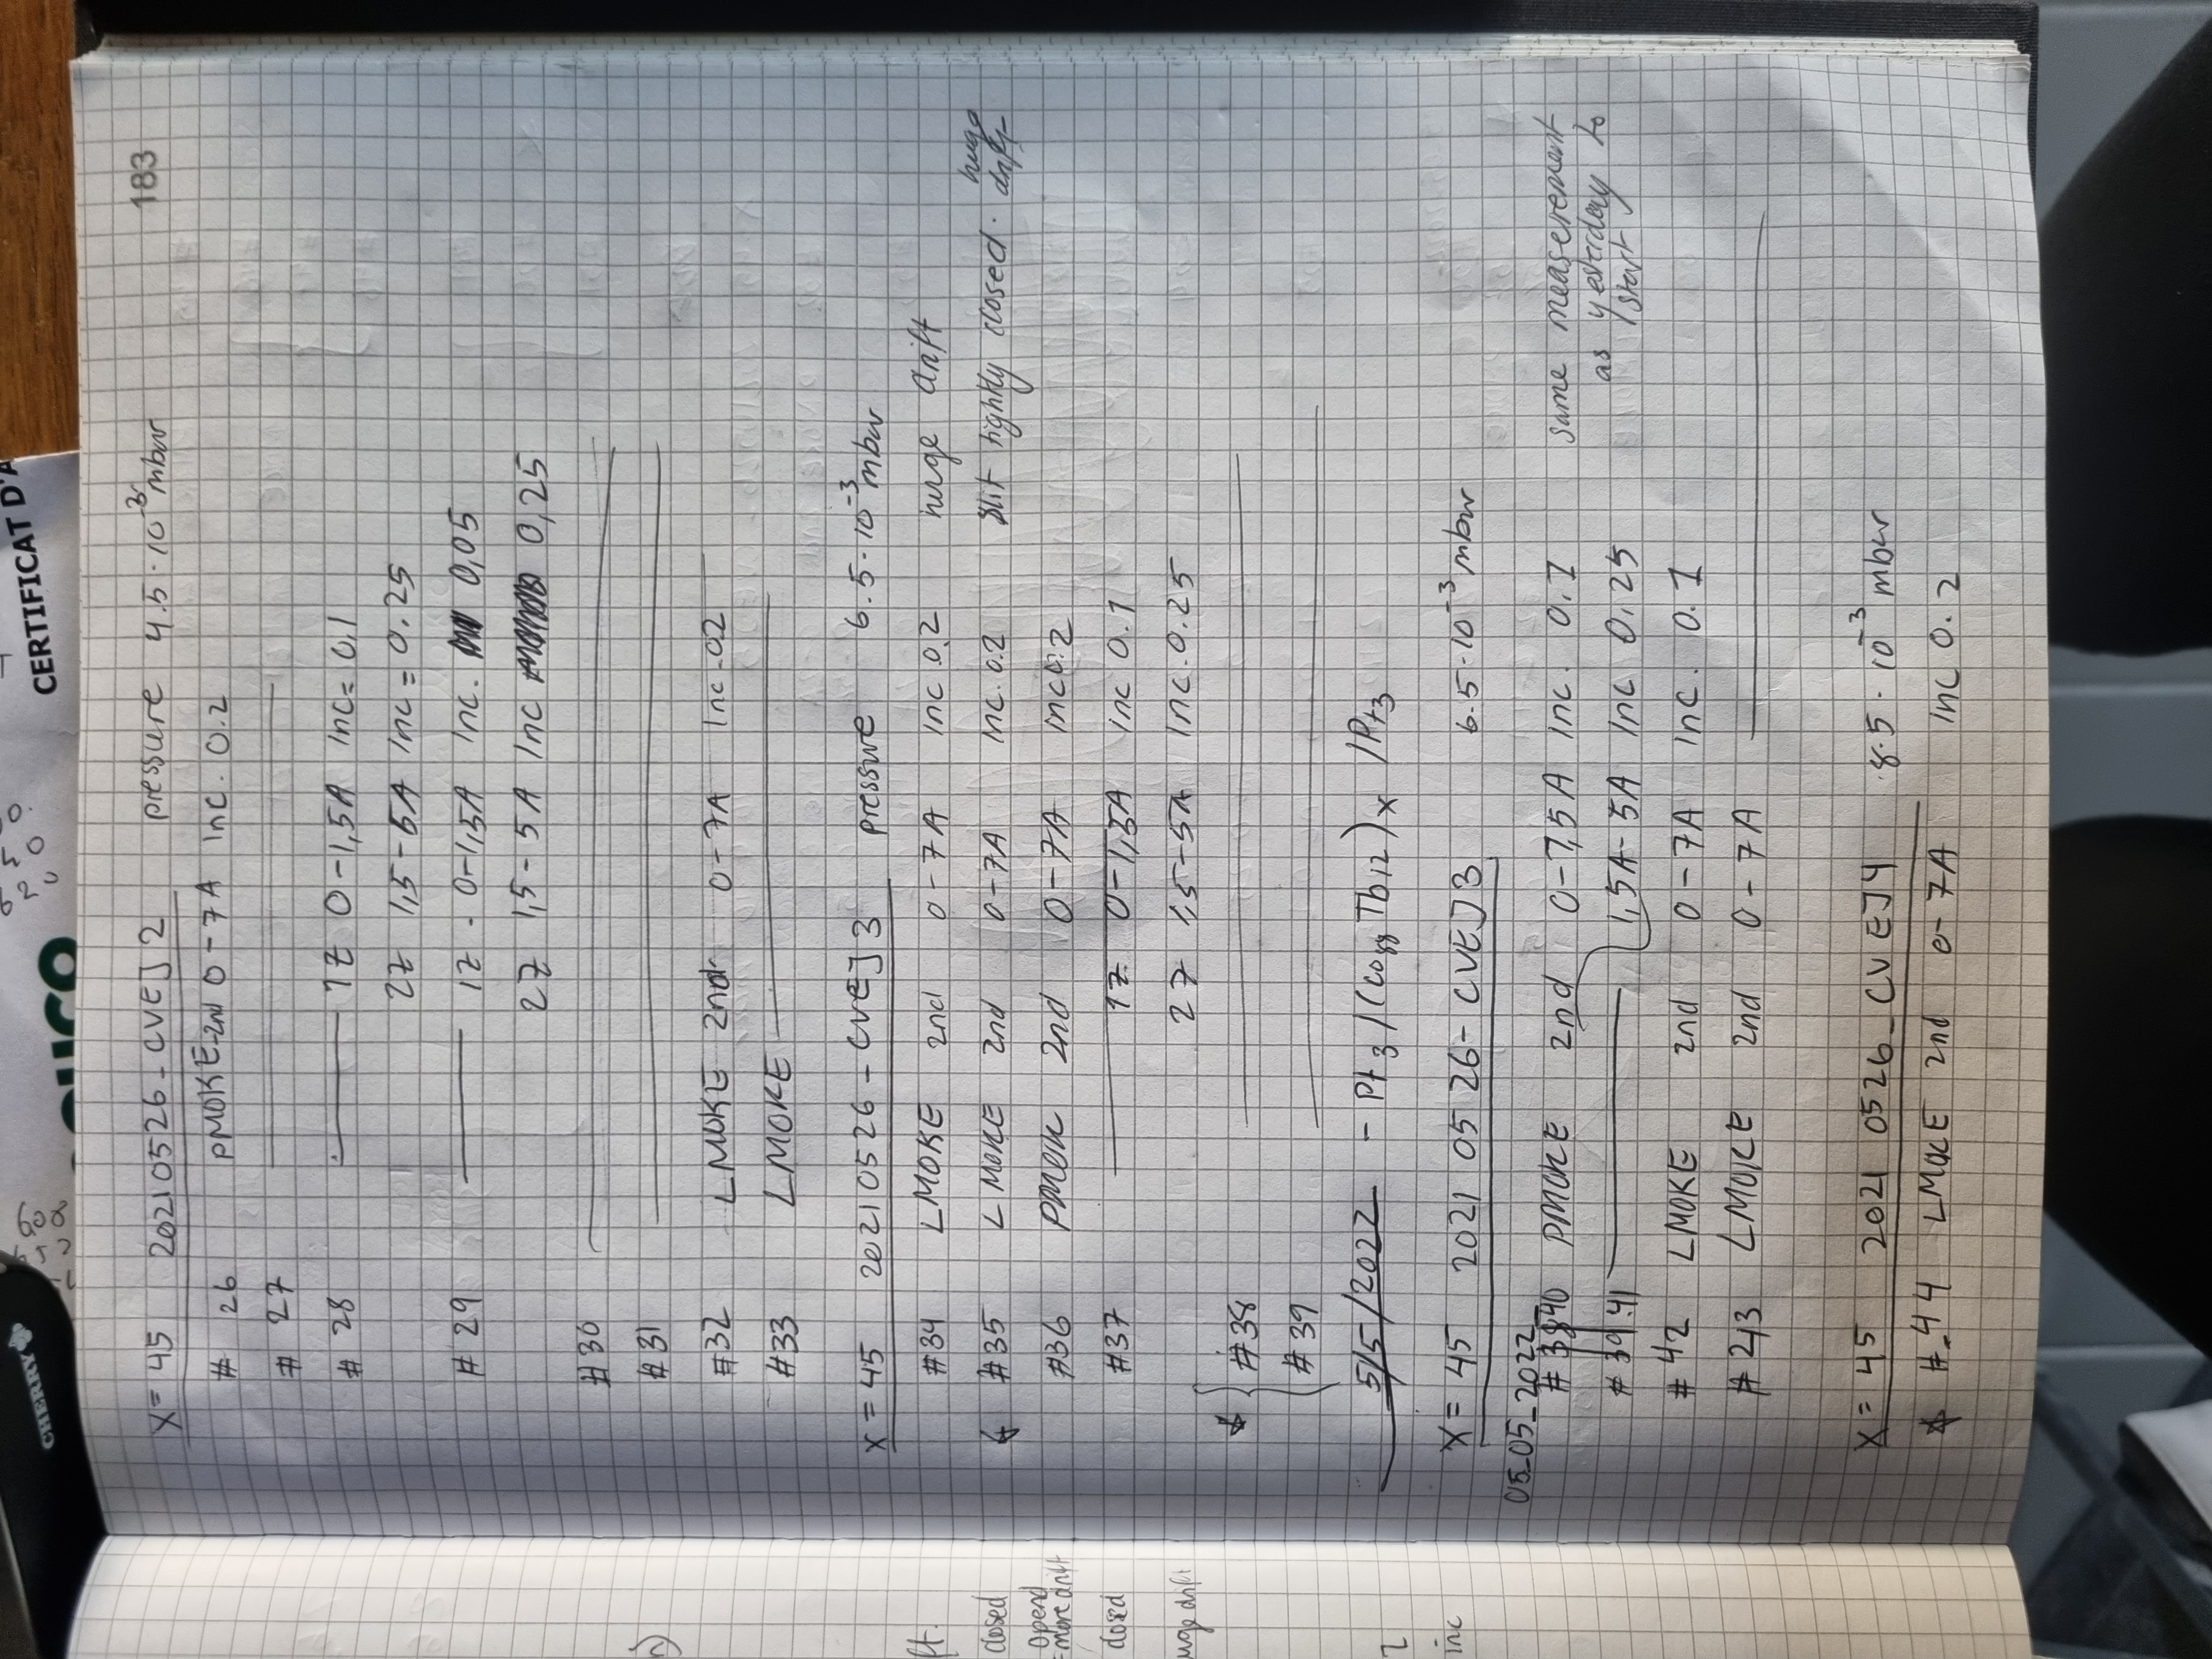 CHERRY
CERTIFICAT D'A
183
X= 45 20210526-CVEJ2 pressure 4.5·10⁻³mbar
# 26 PMOKE-2nd 0-7A Inc. 0.2
# 27 ————
# 28 ———— 1Z 0-1,5A Inc= 0,1
2Z 1,5-5A Inc = 0.25
# 29 ———— 1Z - 0-1,5A Inc. 0,05
2Z 1,5-5A Inc 0,25
#30 ————
#31 ————
#32 LMOKE 2nd 0-7A Inc-0.2
#33 LMOKE ————
x = 45 20210526-CVEJ3 pressure 6.5·10⁻³mbar
#34 LMOKE 2nd 0-7A Inc 0.2 huge drift
#35 LMOKE 2nd 0-7A Inc. 0.2 slit tightly closed. huge drift
#36 PMOK 2nd 0-7A Inc0.2
#37 ———— 1Z 0-1,5A Inc 0.1
2Z 1,5-5A Inc. 0.25
#38 ————
#39 ————
5/5/2022 - Pt3/(Co88Tb12)x/Pt3
X= 45 2021 05 26- CVEJ3 6.5·10⁻³mbar
05_05_2022_
# 40 PMOKE 2nd 0-1,5A Inc. 0.1 same measerement
as yesterday to
start
# 41 ———— 1,5A-5A Inc 0.25
# 42 LMOKE 2nd 0-7A Inc. 0.1
# 43 LMOKE 2nd 0-7A ————
X = 45 2021 0526_CVEJ4 8.5·10⁻³ mbar
#_44 LMOKE 2nd 0-7A Inc 0.2
ft.
closed
opend
=more drift
closed
uge drift
2
inc